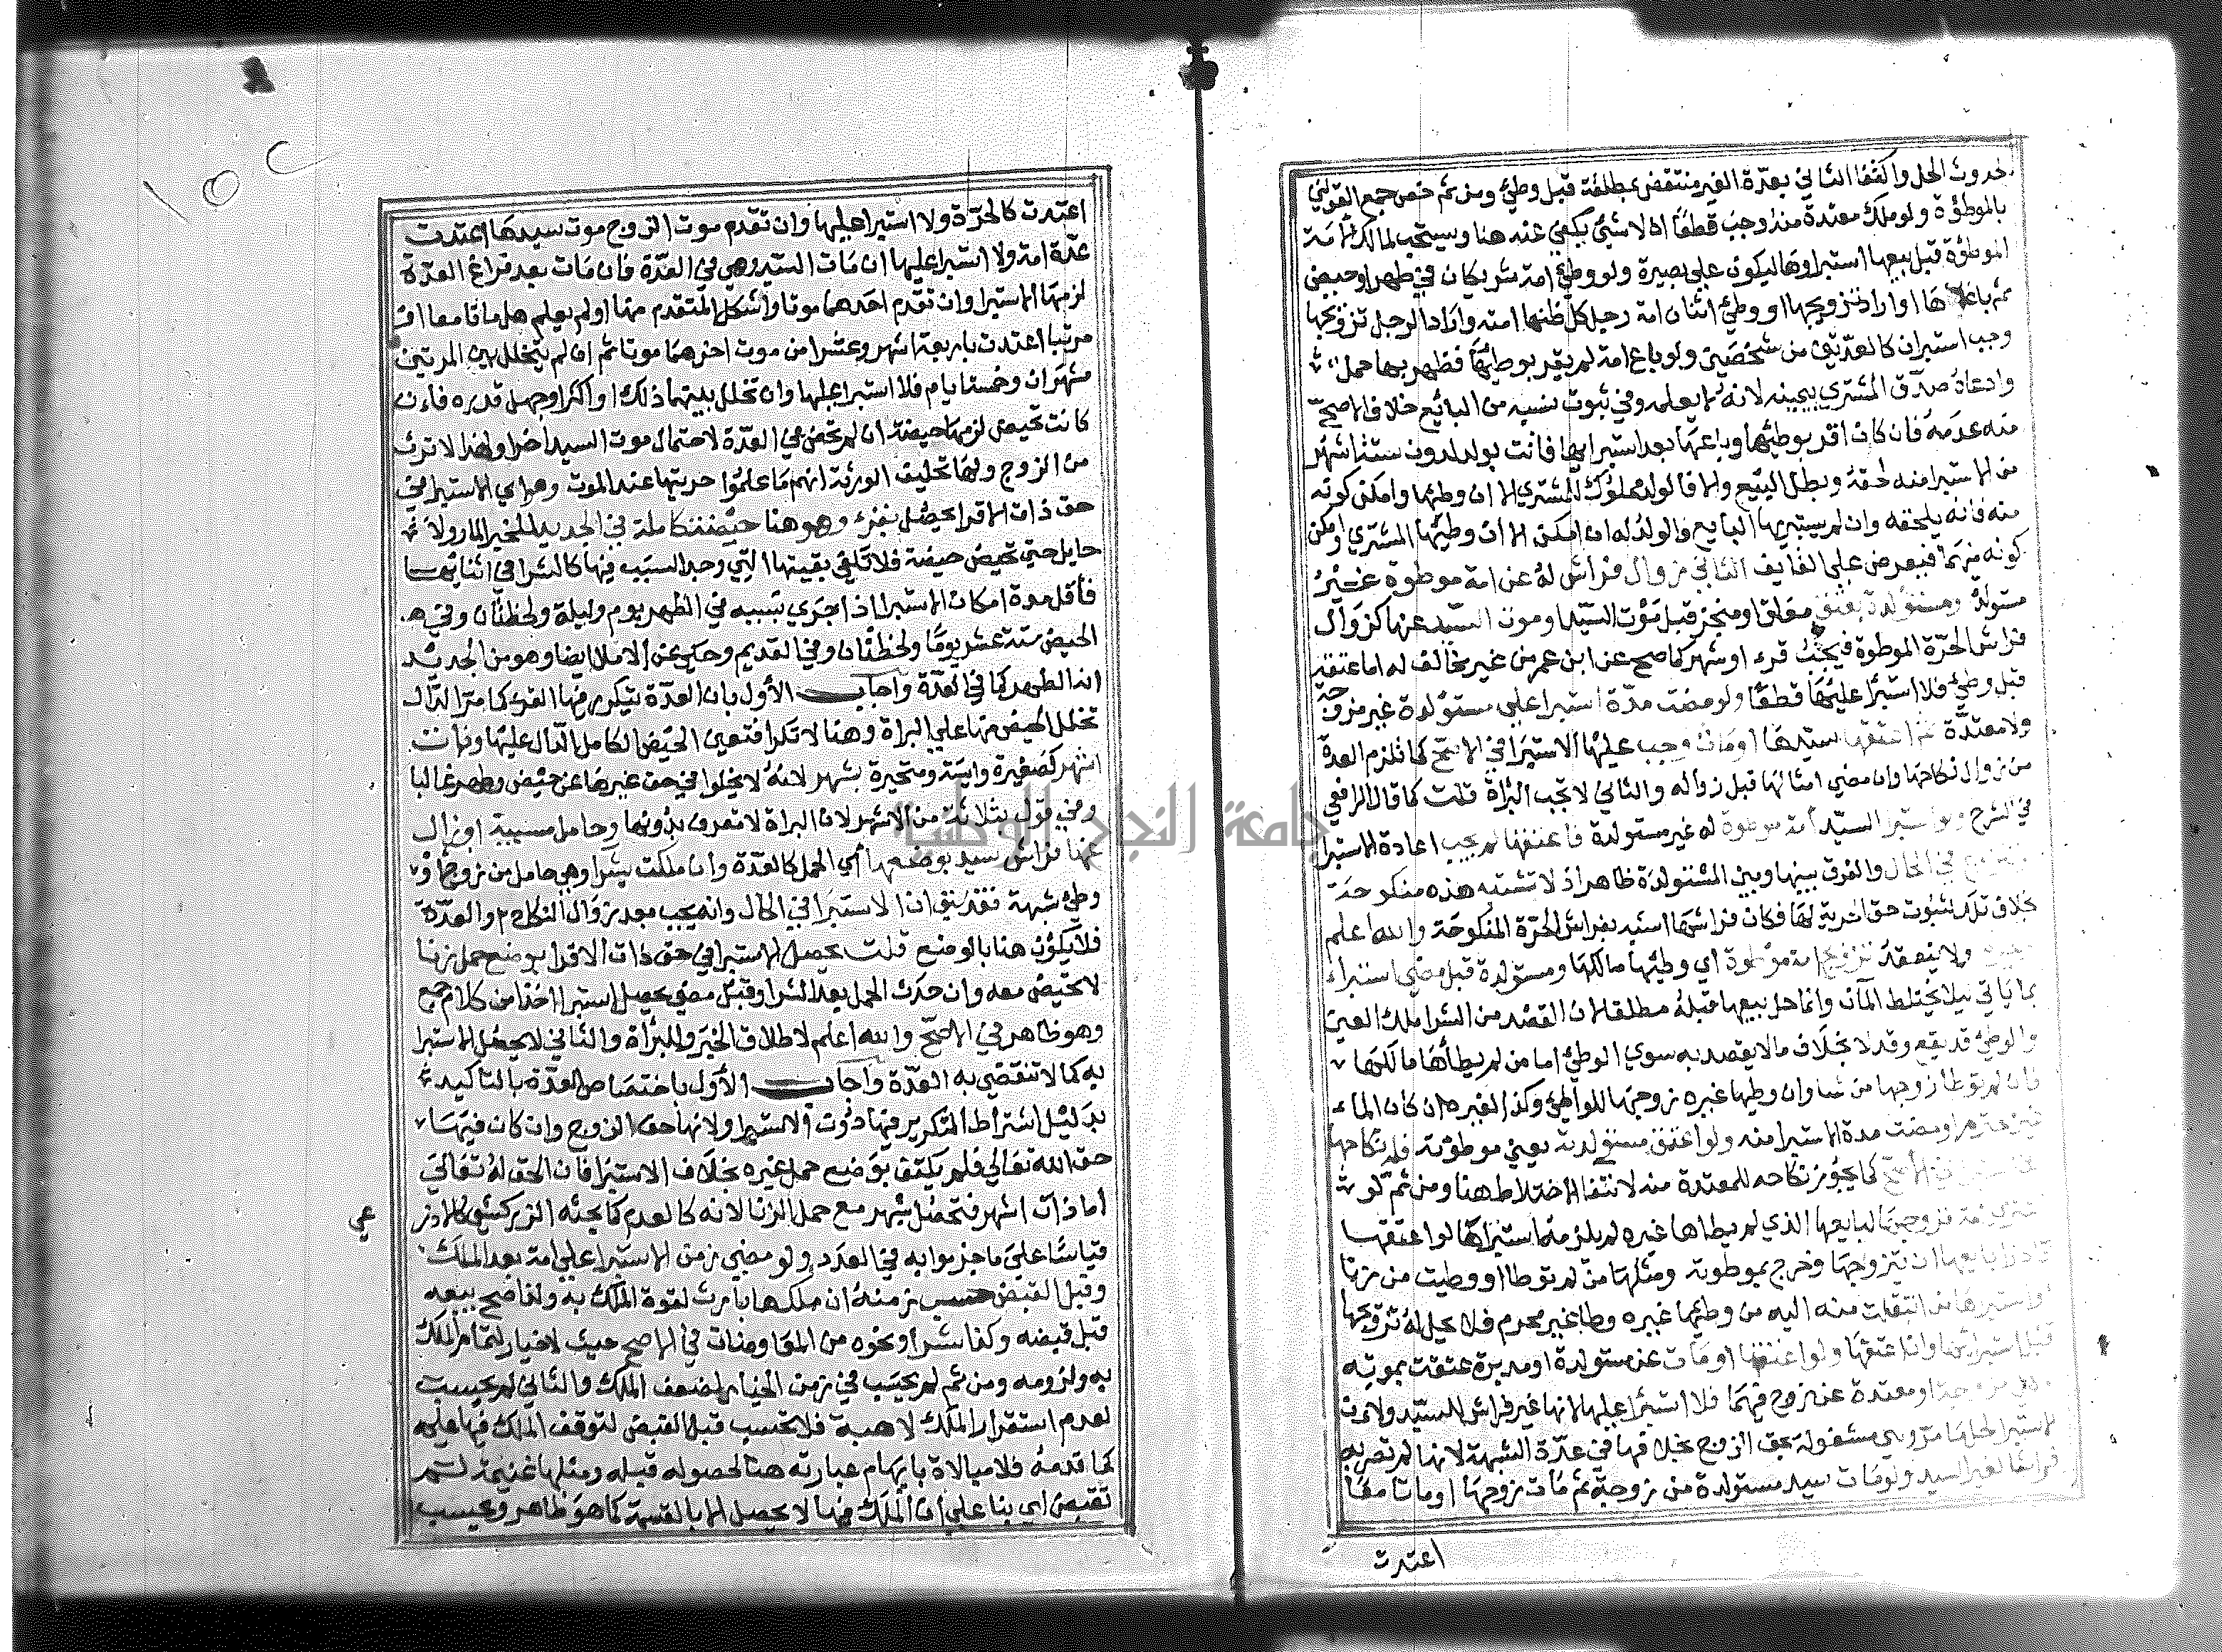 لحدوث الحل واكتفا الثاني بعدة الغير منتقض بمطلقة قبل وطئ ومن ثم خص جمع القولين
بالموطؤة ولو ملك معتدة منه وجب قطعا اذ لا شئ يكفي عنه هنا ويستحب لمالك الامة
الموطؤة قبل بيعها استبراوها ليكون علي بصيرة ولو وطئ امة شريكان في طهر او حيض
ثم باعاها او ارادا تزويجها او وطئ اثنان امة رجل كل ظنها امته واراد الرجل تزويجها
وجب استبران كالعدتين من شخصين ولو باع امة لم يقر بوطيها فظهر بها حمل
وادعاه صدق المشتري بيمينه لانه لا يعلمه وفي ثبوت نسبه من البائع خلاف الاصح
منه عدمه فان كان اقر بوطيها وباعها بعد استبرايها فاتت بولد لدون ستة اشهر
من الاستبرا منه لحقه وبطل البيع والا فالولد مملوك للمشتري الا ان وطيها وامكن كونه
منه فانه يلحقه وان لم يستبريها البايع فالولد له ان امكن الا ان وطيها المشتري وامكن
كونه منهما فيعرض علي القايف الثاني زوال فراش له عن امة موطوة غير
مستولدة ومستولدة بعتق معلق او منجز قبل موت السيد او موت السيد عنها كزوال
فراش الحرة الموطوة فيجب قرء او شهر كما صح عن ابن عمر من غير مخالف له اما عتقه
قبل وطئ فلا استبرا عليها قطعا ولو مضت مدة استبرا علي مستولدة غير مزوجة
ولا معتدة ثم اعتقها سيدها او مات وجب عليها الاستبرا في الاصح كما تلزم العدة
من زوال نكاحها وان مضي امثالها قبل زواله والثاني لا تجب البراة قلت كما قال الرافعي
في الشرح ولو استبرا السيد امة موطوة له غير مستولدة فاعتقها لم يجب اعادة الاستبرا
في الحال والفرق بينها وبين المستولدة ظاهر اذ لا تشبه هذه منكوحة
بخلاف تلك لثبوت حق الحرية لها فكان فراشها اشبه بفراش الحرة المنكوحة والله اعلم
ولا ينعقد تزويج امة موطوة اي وطيها مالكها ومستولدة قبل مضي استبراء
بما ياتي ليلا يختلط المآن وانما حل بيعها قبله مطلقا لان القصد من الشرا ملك العين
والوطئ قد يقع وقد لا بخلاف ما لا يقصد به سوي الوطئ اما من لم يطأها مالكها
فان لم توطا زوجها من شا وان وطيها غيره زوجها للواطئ وكذا لغيره ان كان الماء
غير محترم او مضت مدة الاستبرا منه ولو اعتق مستولدته يعني موطؤته فله نكاحها
في الاصح كما يجوز نكاحه للمعتدة منه لانتفا الاختلاط هنا ومن ثم لو
امة فزوجها لبايعها الذي لم يطاها غيره لم يلزمه استبراها لو اعتقها
بايعها ان يتزوجها وخرج بموطوته ومثلها من لم توطا او وطيت من زنا
او استبرها من انتقلت منه اليه من وطيها غيره وطا غير محرم فلا يحل له تزوجها
قبل استبرائها وان اعتقها ولو اعتقها او مات عن مستولدة او مدبرة عتقت بموته
وهي مزوجة او معتدة عن زوج فيهما فلا استبرا عليها لانها غير فراش للسيد ولان
الاستبرا لحلها مر وهي مشغولة بحق الزوج بخلافها في عدة الشبهة لانها لم تصر به
فراشا لغير السيد ولو مات سيد مستولدة من زوجة ثم مات زوجها او ماتا معا
اعتدت
اعتدت كالحرة ولا استبرا عليها وان تقدم موت الزوج موت سيدها اعتدت
عدة امة ولا استبرا عليها ان مات السيد وهي في العدة فان مات بعد فراغ العدة
لزمها الاستبرا وان تقدم احدهما موتا واشكل المتقدم منهما او لم يعلم هل ماتا معا او
مرتبا اعتدت باربعة اشهر وعشرا من موت اخرهما موتا ثم ان لم يتخلل بين الموتين
شهران وخمسة ايام فلا استبرا عليها وان تخلل بينهما ذلك او اكثر او جهل قدره فان
كانت تحيض لزمها حيضة ان لم تحض في العدة لاحتمال موت السيد اخرا ولهذا لا ترث
من الزوج ولها تحليف الورثة انهم ما علموا حريتها عند الموت وهو اي الاستبرا في
حق ذات الاقرا يحصل بقرء وهو هنا حيضة كاملة في الجديد للخبر المار ولا
حايل حتي تحيض حيضة فلا تكفي بقيتها التي وجد السبب فيها كالشرا في اثنائها
فاقل مدة امكان الاستبرا اذا جري سببه في الطهر يوم وليلة ولحظتان وفي
الحيض ستة عشر يوما ولحظتان وفي القديم وحكي عن الاملا ايضا وهو من الجديد
انه الطهر كما في العدة واجاب الأول بان العدة يتكرر فيها القرء كما مر الدال
تخلل الحيض منها علي البراة وهنا لا تكرر فتعين الحيض الكامل الدال عليها وذات
اشهر كصغيرة وايسة ومتحيرة بشهر لانه لا يخلوا في حق غيرها عن حيض وطهر غالبا
وفي قول بثلاثة من الاشهر لان البراة لا تعرف بدونها وحامل مسبية او زال
عنها فراش سيد بوضعها اي الحمل كالعدة وان ملكت بشرا وهي حامل من زوج او
وطئ شبهة فقد سبق ان لا استبرا في الحال وانه يجب بعد زوال النكاح والعدة
فلا يكون هنا بالوضع قلت يحصل الاستبرا في حق ذات الاقرا بوضع حمل زنا
لا تحيض معه وان حدث الحمل بعد الشرا وقبل مضي محصل استبرا اخذا من كلام جمع
وهو ظاهر في الاصح والله اعلم لاطلاق الخبر وللبراة والثاني لا يحصل الاستبرا
به كما لا تنقضي به العدة واجاب الأول باختصاص العدة بالتاكيد
بدليل اشتراط التكرير فيها دون الاستبرا ولانها حق الزوج وان كان فيها
حق الله تعالي فلم يكتف بوضع حمل غيره بخلاف الاستبرا فان الحق له تعالي
اما ذات اشهر فتحصل بشهر مع حمل الزنا لانه كالعدم كما بحثه الزركشي كالاذر
عي
قياسا علي ما جزموا به في العدد ولو مضي زمن الاستبرا علي امة بعد الملك
وقبل القبض حسب زمنه ان ملكها بارث لقوة الملك به ولذا صح بيعه
قبل قبضه وكذا شرا ونحوه من المعاوضات في الاصح حيث لا خيار لتمام الملك
به ولزومه ومن ثم لم يحسب في زمن الخيار لضعف الملك والثاني لم يحسب
لعدم استقرار الملك لا هبة فلا تحسب قبل القبض لتوقف الملك فيها عليه
كما قدمه فلا مبالاة بايهام عبارته هنا لحصوله قبله ومثلها غنيمة لم
تقبض اي بنا علي ان الملك فيها لا يحصل الا بالقسمة كما هو ظاهر ويحسب
١٥٢
جامعة النجاح الوطنية